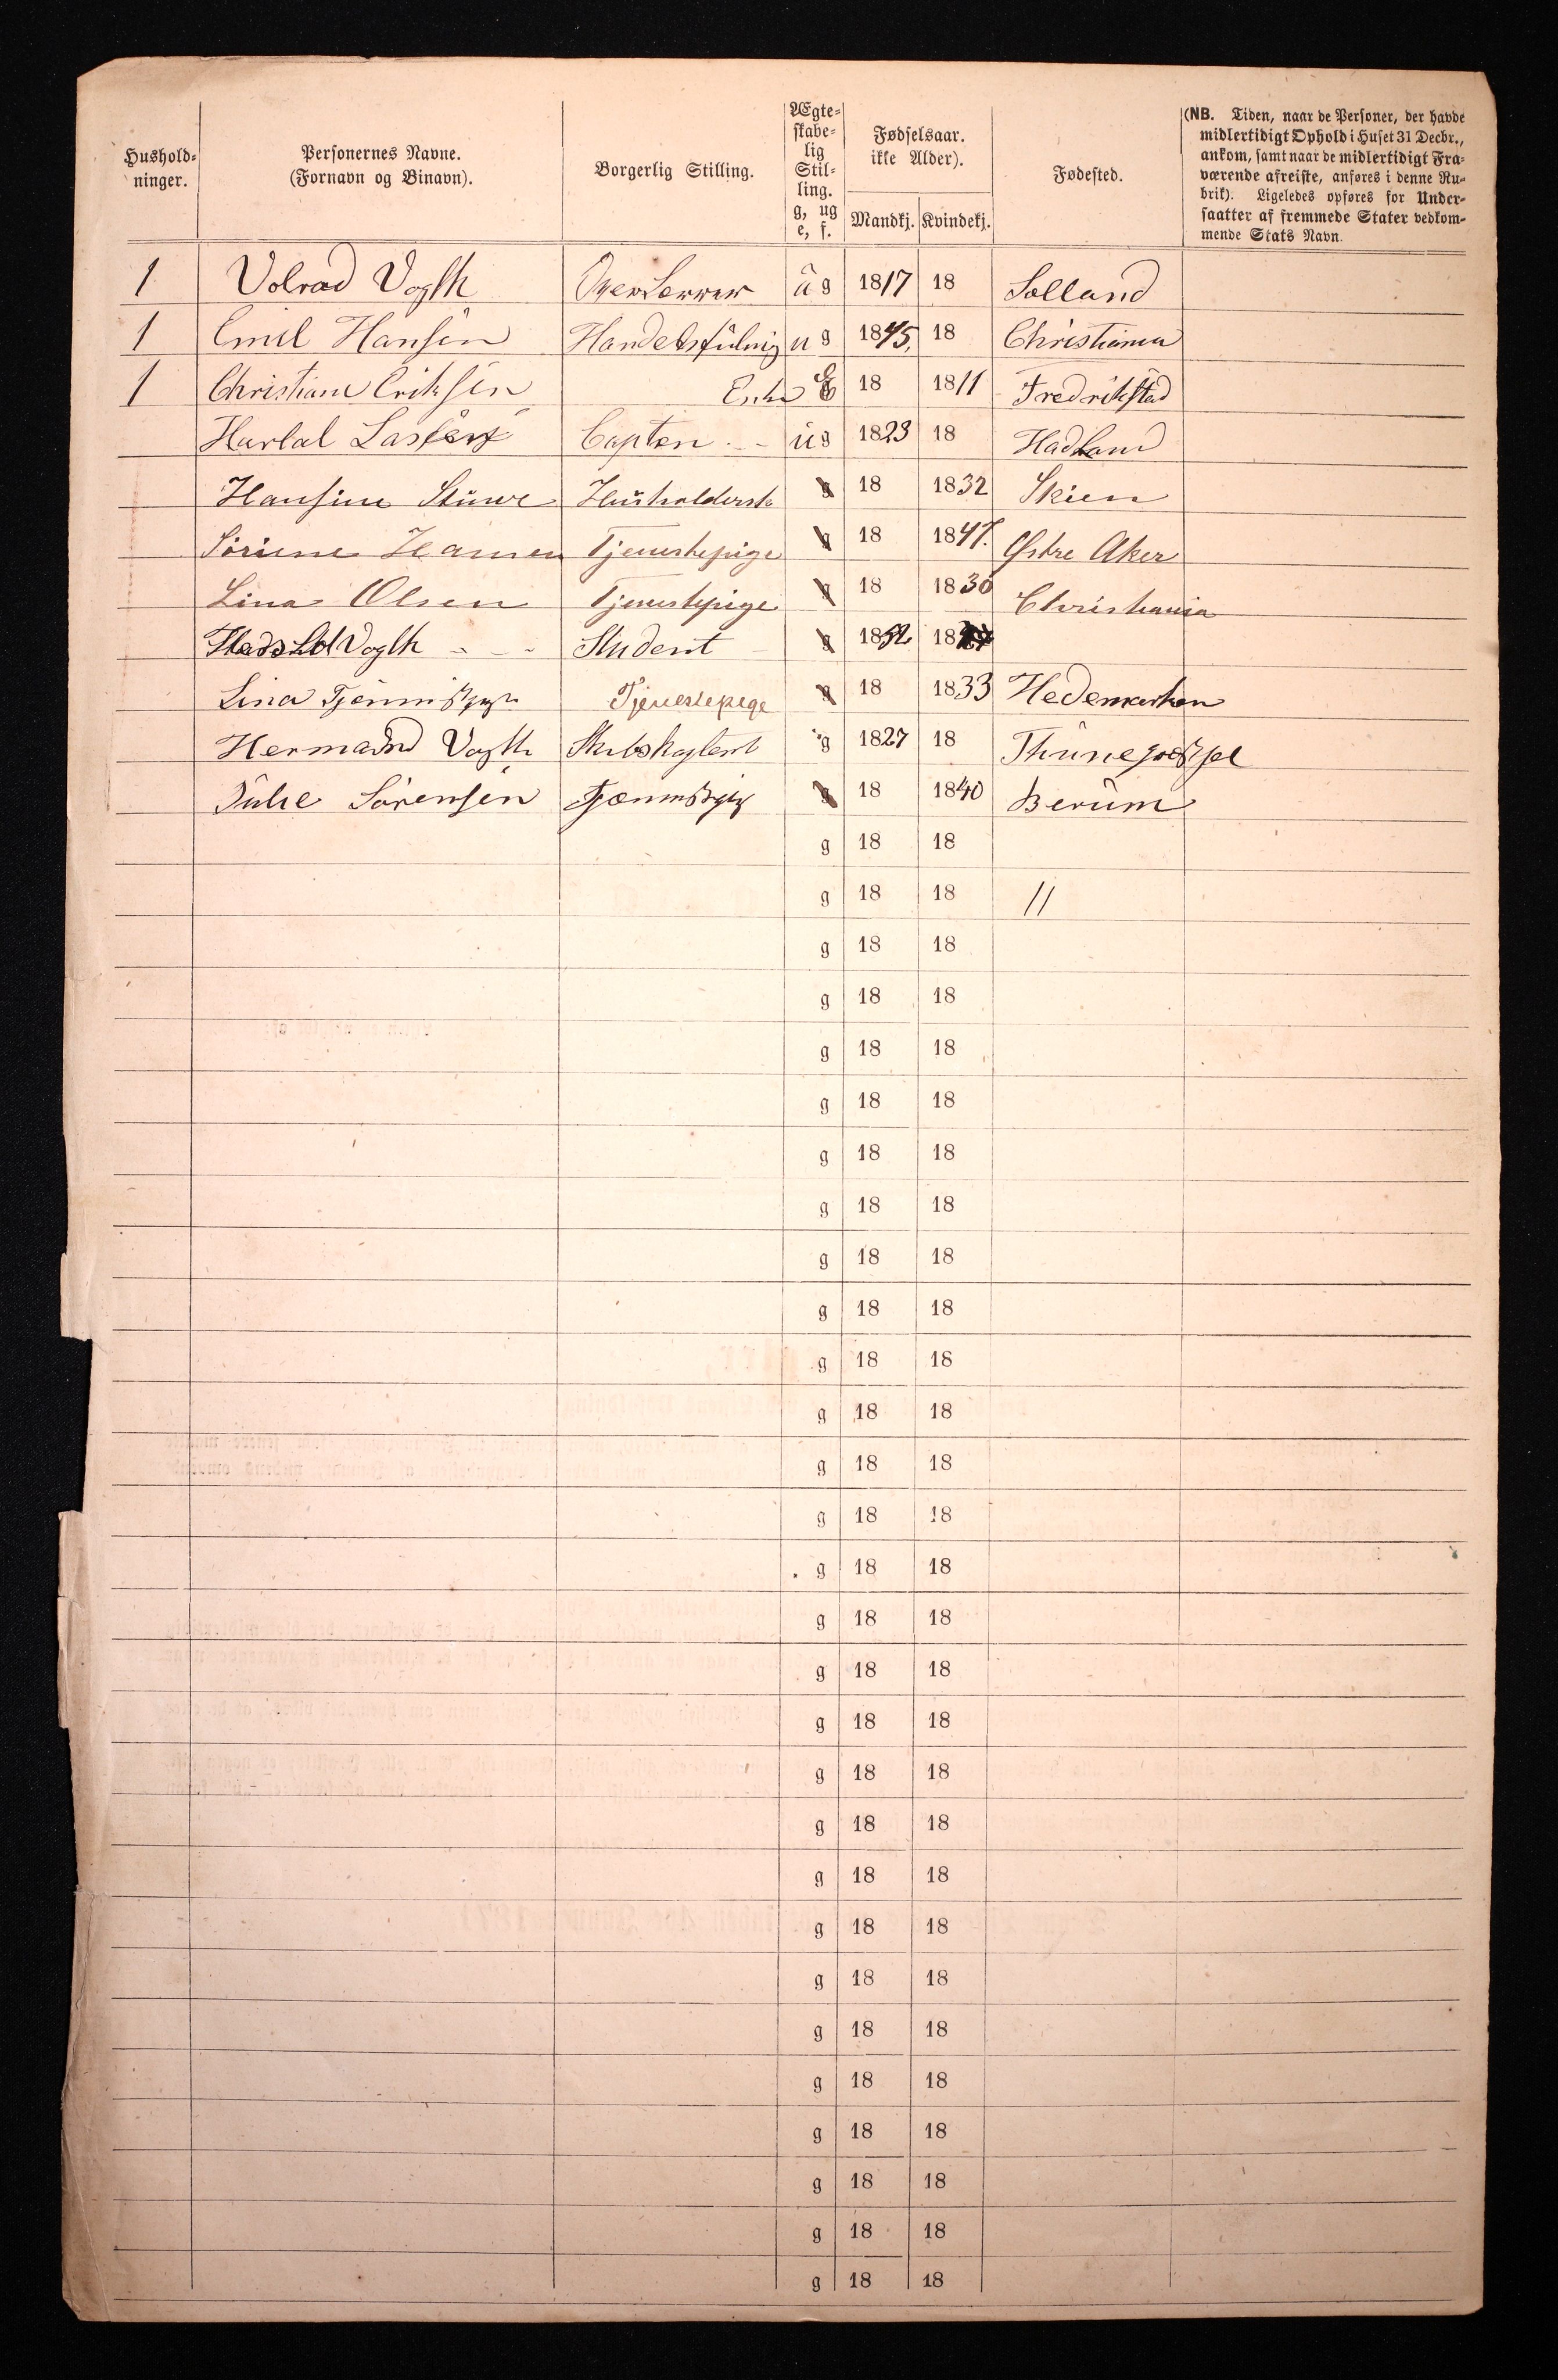 Hushold-
ninger.
Personernes Navne.
(Fornavn og Binavn).
Borgerlig Stilling.
Ægte-
skabe-
lig
Stil-
ling.
g, ug
e, f.
Fødselsaar.
ikke Alder).
Mandkj. Kvindekj.
Fødested.
(NB. Tiden, naar de Personer, der havde
midlertidigt Ophold i Huset 31 Decbr.,
ankom, samt naar de midlertidigt Fra-
værende afreiste, anføres i denne Ru-
brik). Ligeledes opføres for Under-
saatter af fremmede Stater vedkom-
mende Stats Navn.
1 Volrad Vogth ug 1817 18 Solland
1 Emil Hansen ug 1845, 18 Christiania
1 Christiane Eriksen Enke E 18 1811 Fredrikstad
Capten ug 1823 18 Hadland
Hansine Husholderske g 18 1832 Skien
Hansen Tjenestepige g 18 1847. Østre Aker
Lina Olsen Tjenestepige g 18 1830 Christiania
Vogth Student g 1852 18
Lina g 18 1833 Hedemarken
Vogth g 1827 18
Julie Sørensen g 18 1840 Berum
g 18 18
g 18 18 "
g 18 18
g 18 18
g 18 18
g 18 18
g 18 18
g 18 18
g 18 18
g 18 18
g 18 18
g 18 18
g 18 18
g 18 18
g 18 18
g 18 18
g 18 18
g 18 18
g 18 18
g 18 18
g 18 18
g 18 18
g 18 18
g 18 18
g 18 18
g 18 18
g 18 18
g 18 18
g 18 18